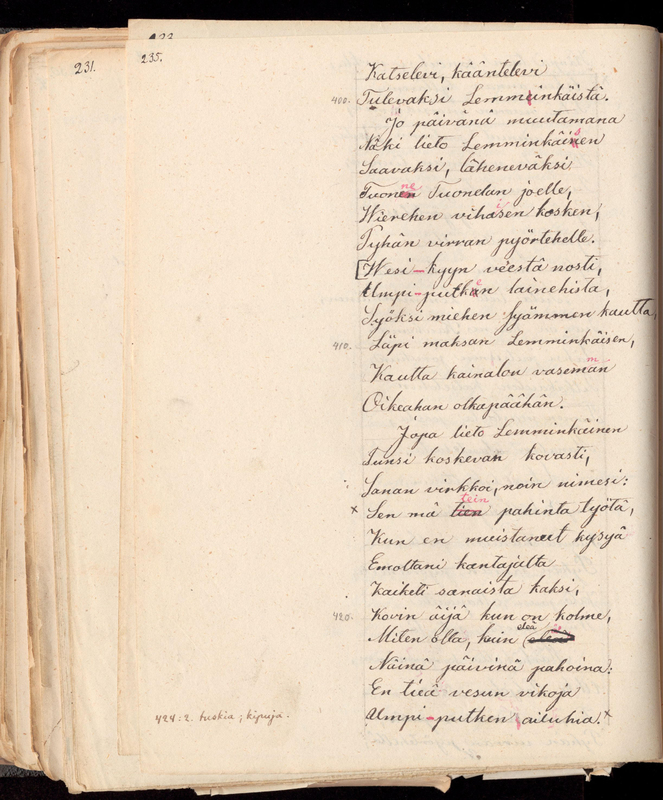 231.
235.
Katselevi, kääntelevi
400. Tulevaksi Lemminkäistä.
Jo päivänä muutamana
Näki lieto Lemminkäisen
Saavaksi, läheneväksi
Tuonne Tuonelan joelle,
Wierehen vihaisen kosken,
Pyhän virran pyörtehelle.
Wesi-kyyn veestä nosti,
Umpi-putken lainehista,
Syöksi miehen syämmen kautta,
410. Läpi maksan Lemminkäisen,
Kautta kainalon vasemman
Oikeahan olkapäähän.
Jopa lieto Lemminkäinen
Tunsi koskevan kovasti,
Sanan virkkoi, noin nimesi:
x Sen mä tien tein pahinta työtä,
Kun en muistanut kysyä
Emoltani kantajalta
Kaiketi sanaista kaksi,
420. Kovin äijä kun on kolme,
Miten olla, kuin eleä
Näinä päivinä pahoina:
En tieä vesun vikoja
Umpi-putken ailuhia. x
424: 2. tuskia; kipuja.